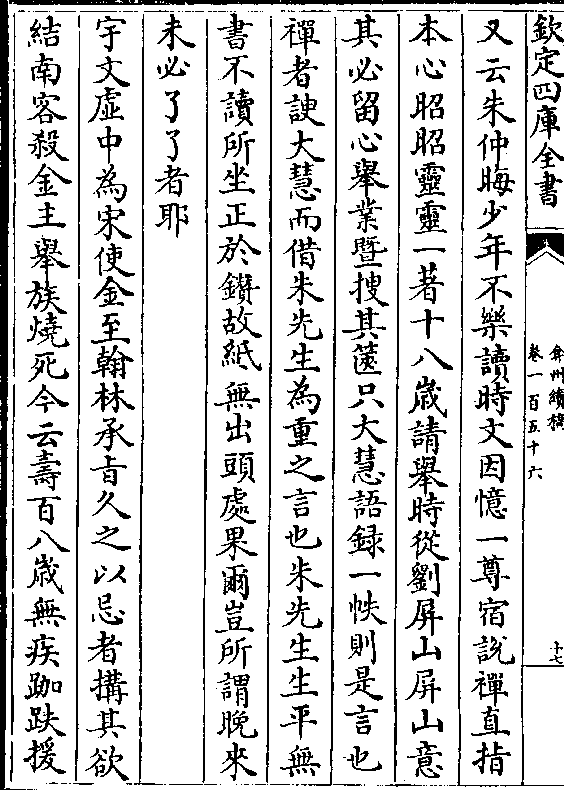 欽定四庫全書
弇州續稿
卷一百五十六
十七
又云朱仲晦少年不樂讀時文因憶一尊宿説禪直指
本心昭昭靈靈一著十八歲請舉時從劉屏山屏山意
其必留心舉業暨搜其篋只大慧語録一帙則是言也
禪者諛大慧而借朱先生為重之言也朱先生生平無
書不讀所坐正於鑚故紙無出頭處果爾豈所謂晚來
未必了了者耶
宇文虛中為宋使金至翰林承㫖久之以忌者搆其欲
結南客殺金主舉族燒死今云壽百八歲無疾跏趺援